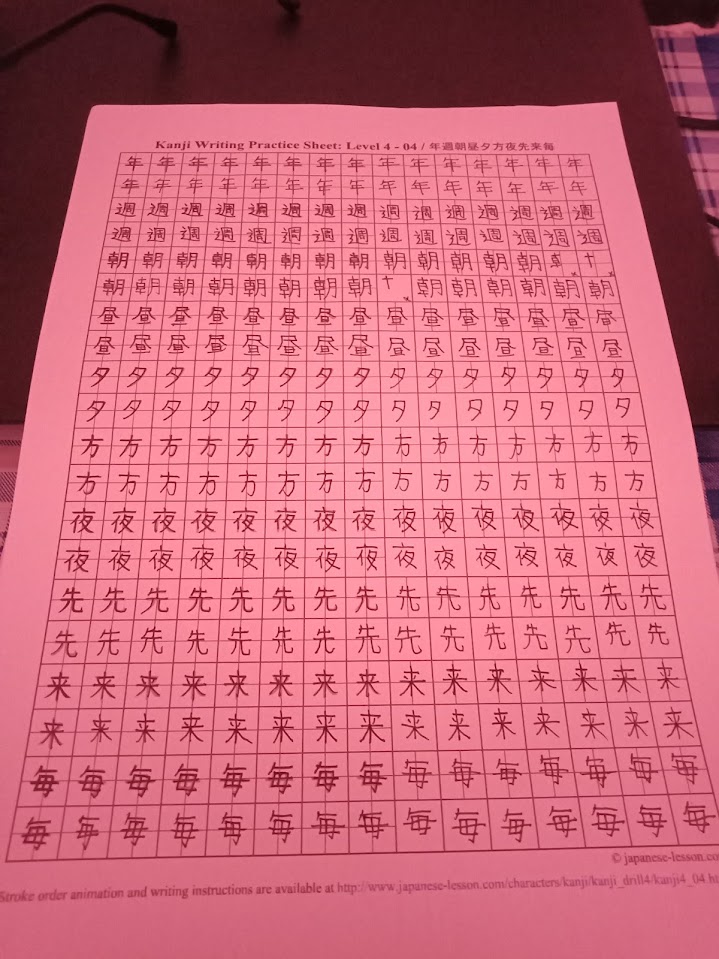 Kanji Writing Practice Sheet: Level 4 - 04 / 年週朝昼夕方夜先来毎
年年年年年年年年年年年年年年年
年年年年年年年年年年年年年年年
週週週週週週週週週週週週週週週
週週週週週週週週週週週週週週週
朝朝朝朝朝朝朝朝朝朝朝朝朝 十
朝朝朝朝朝朝朝朝十朝朝朝朝朝朝
昼昼昼昼昼昼昼昼昼昼昼昼昼昼昼
昼昼昼昼昼昼昼昼昼昼昼昼昼昼昼
夕夕夕夕夕夕夕夕夕夕夕夕夕夕夕
夕夕夕夕夕夕夕夕夕夕夕夕夕夕夕
方方方方方方方方方方方方方方方
方方方方方方方方方方方方方方方
夜夜夜夜夜夜夜夜夜夜夜夜夜夜夜
夜夜夜夜夜夜夜夜夜夜夜夜夜夜夜
先先先先先先先先先先先先先先先
先先先先先先先先先先先先先先先
来来来来来来来来来来来来来来来
来来来来来来来来来来来来来来来
毎毎毎毎毎毎毎毎毎毎毎毎毎毎毎
毎毎毎毎毎毎毎毎毎毎毎毎毎毎毎
© japanese-lesson.co
Stroke order animation and writing instructions are available at http://www.japanese-lesson.com/characters/kanji/kanji_drill4/kanji4_04.ht